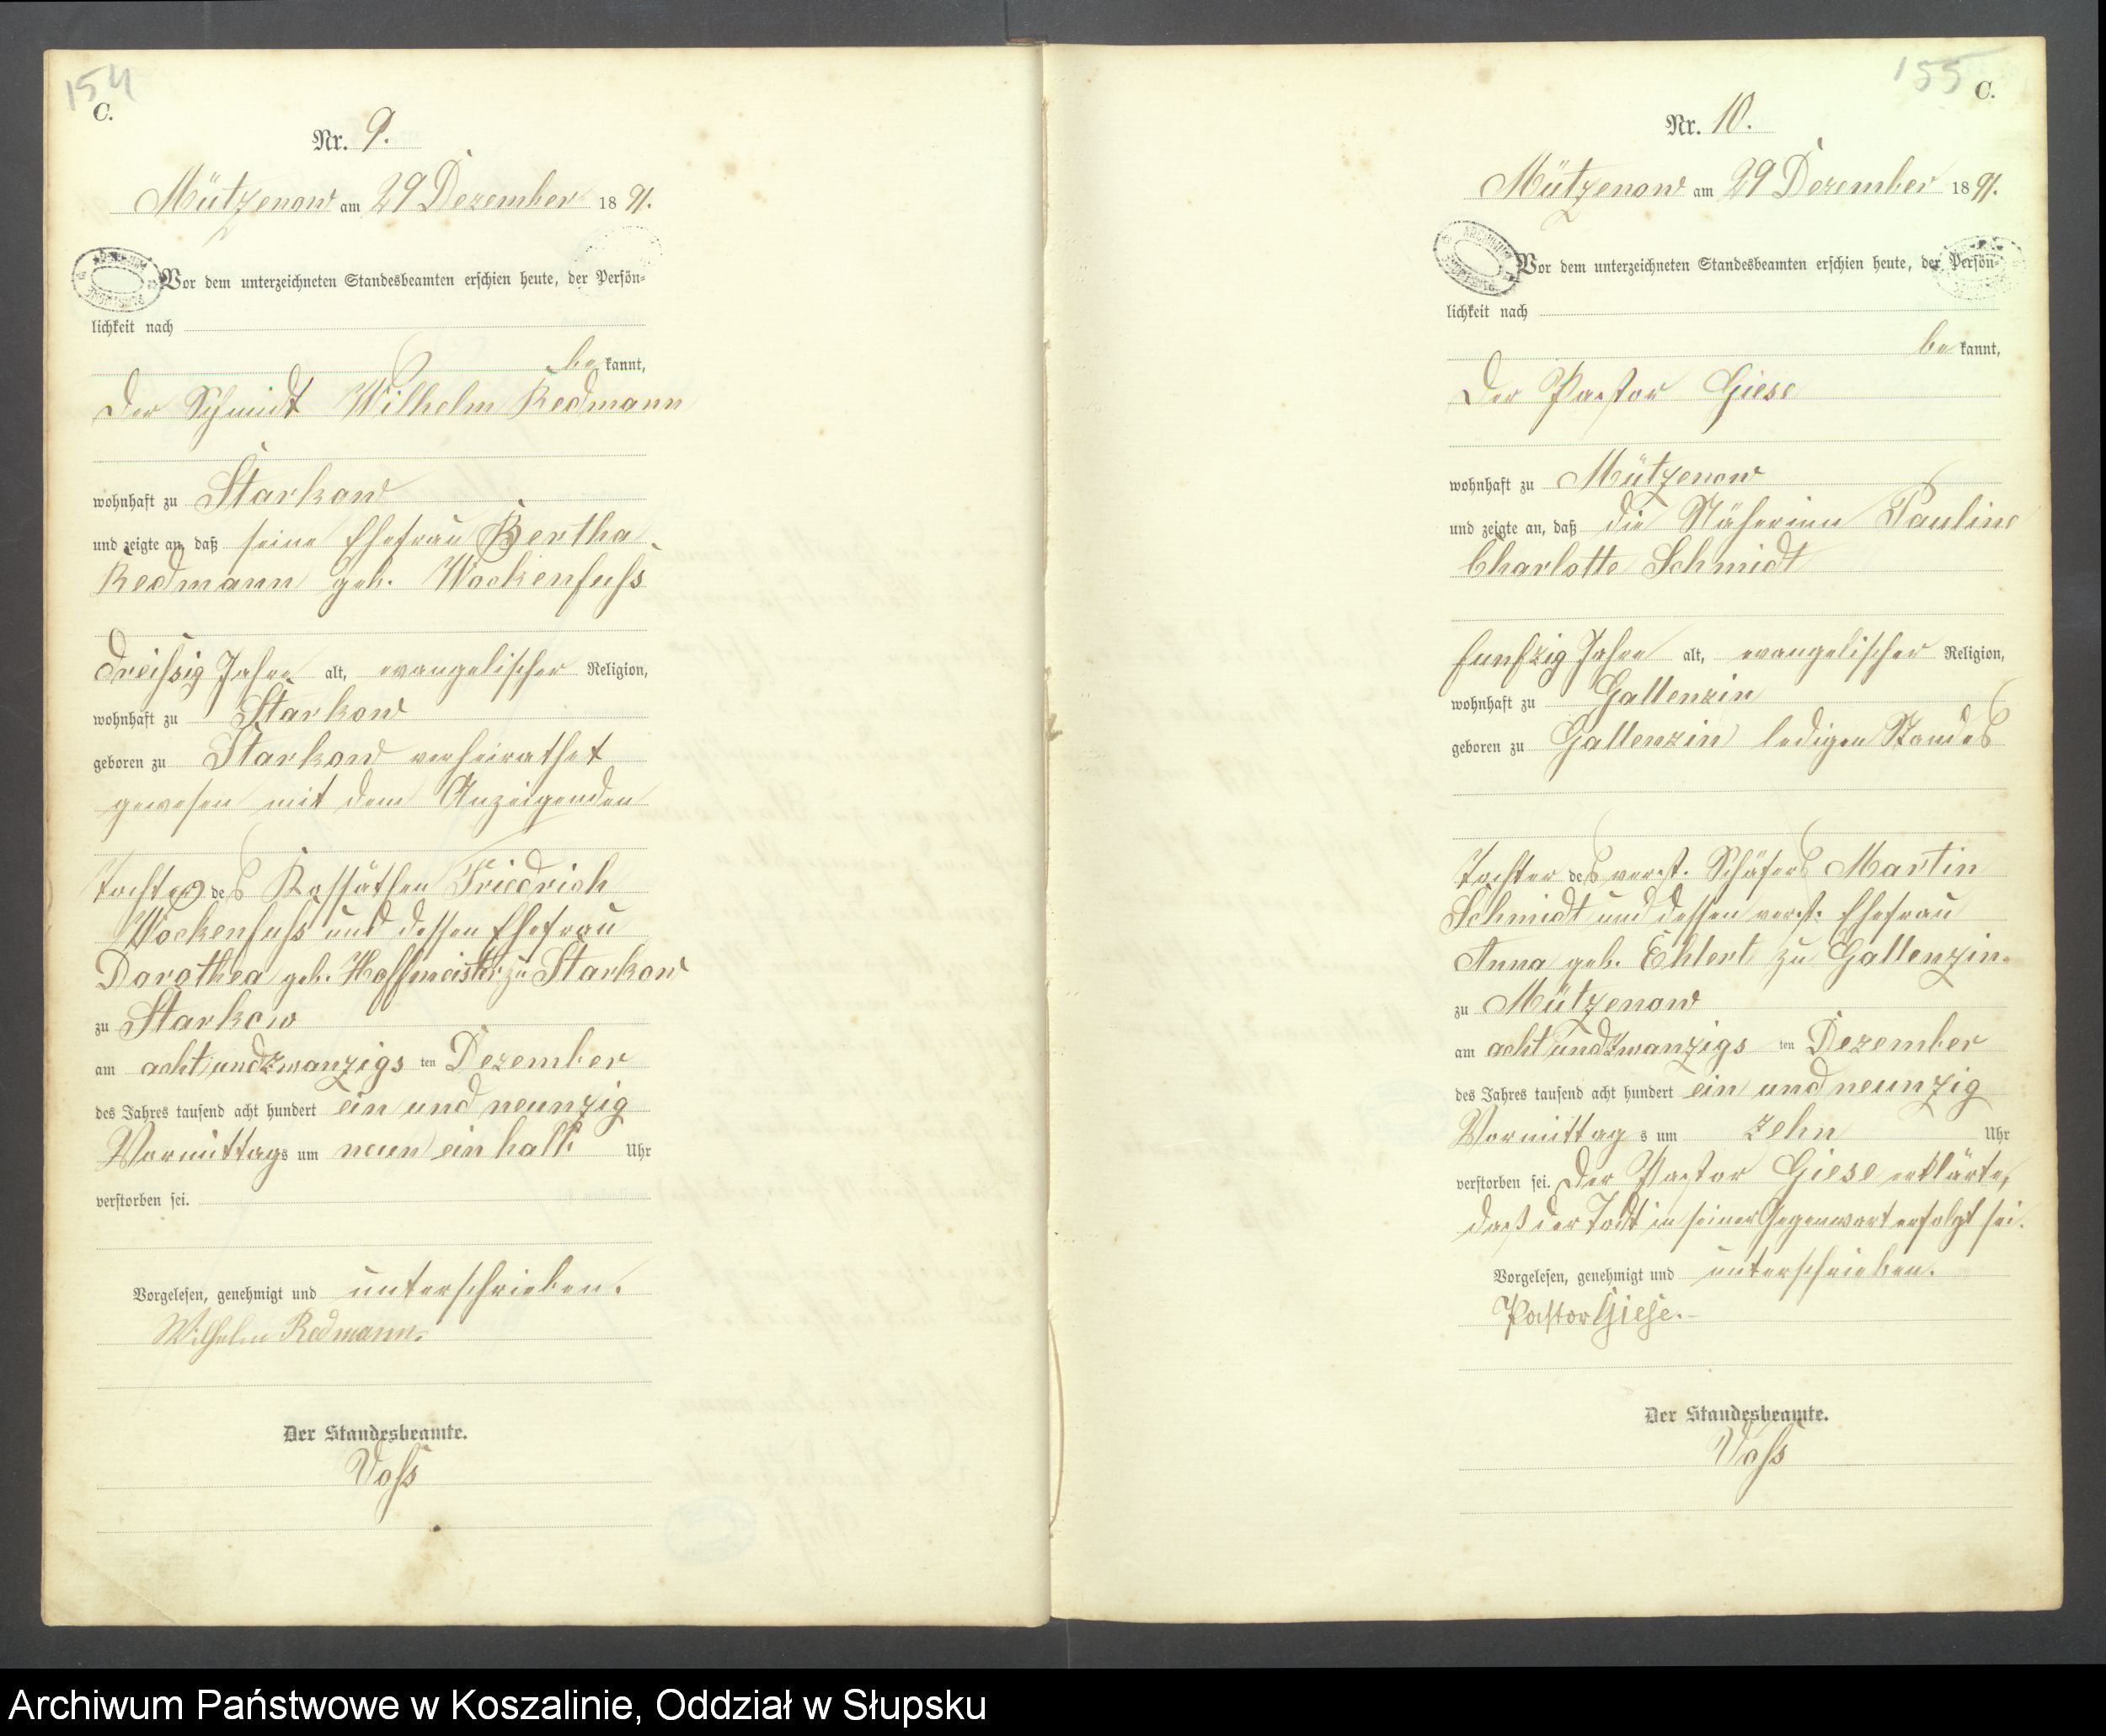 154
C.
Nr. 9.
Mützenow am 29 Dezember 1891.
Vor dem unterzeichneten Standesbeamten erschien heute, der Persön-
lichkeit nach
bekannt,
der Schmidt Wilhelm Redmann
wohnhaft zu Starkow
und zeigte an, daß seine Ehefrau Bertha
Redmann geb. Wockenfuss
dreißig Jahre alt, evangelischer Religion,
wohnhaft zu Starkow
geboren zu Starkow verheirathet
gewesen mit dem Anzeigenden
Tochter des Kossäthen Friedrich
Wockenfuss und dessen Ehefrau
Dorothea geb. Hoffmeister zu Starkow
zu Starkow
am acht und zwanzigsten Dezember
des Jahres tausend acht hundert ein und neunzig
Vormittags um neun ein halb Uhr
verstorben sei.
Vorgelesen, genehmigt und unterschrieben.
Wilhelm Redmann.
Der Standesbeamte.
Voss
155
C.
Nr. 10.
Mützenow am 29 Dezember 1891.
Vor dem unterzeichneten Standesbeamten erschien heute, der Persön-
lichkeit nach
bekannt,
der Pastor Giese
wohnhaft zu Mützenow
und zeigte an, daß die Näherinn Pauline
Charlotte Schmidt
funfzig Jahre alt, evangelischer Religion,
wohnhaft zu Gallenzin
geboren zu Gallenzin ledigen Standes
Tochter des verst. Schäfers Martin
Schmidt und dessen verst. Ehefrau
Anna geb. Ehlert zu Gallenzin.
zu Mützenow
am acht und zwanzigsten Dezember
des Jahres tausend acht hundert ein und neunzig
Vormittags um zehn Uhr
verstorben sei. Der Pastor Giese erklärte,
daß der Todt in seiner Gegenwart erfolgt sei.
Vorgelesen, genehmigt und unterschrieben.
Pastor Giese.-
Der Standesbeamte.
Voss
Archiwum Państwowe w Koszalinie, Oddział w Słupsku